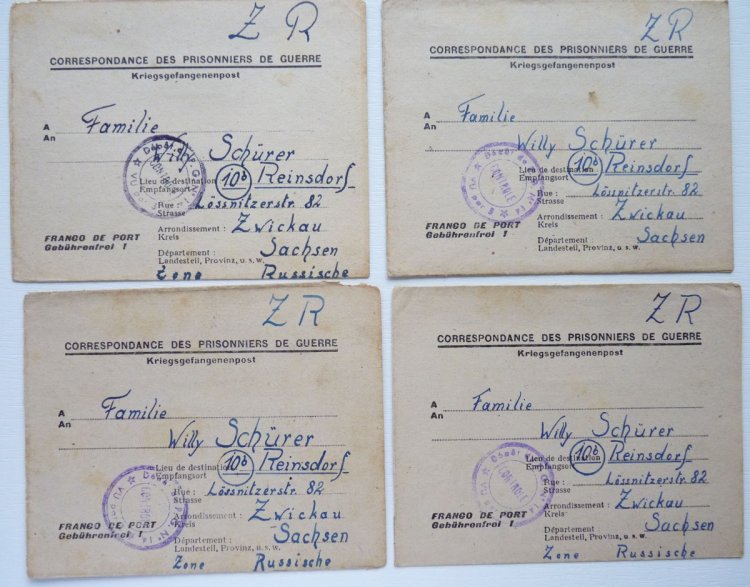 Z R
CORRESPONDANCE DES PRISONNIERS DE GUERRE
Kriegsgefangenenpost
A
An
Familie
Willy Schürer
Lieu de destination
Empfangsort
10b Reinsdorf
Rue :
Strasse
Lössnitzerstr. 82
Arrondissement :
Kreis
Zwickau
FRANCO DE PORT
Gebührenfrei !
Département :
Landesteil, Provinz, u. s. w.
Sachsen
Zone Russische
Z R
CORRESPONDANCE DES PRISONNIERS DE GUERRE
Kriegsgefangenenpost
A
An
Familie
Willy Schürer
Lieu de destination
Empfangsort
10b Reinsdorf
Rue :
Strasse
Lössnitzerstr. 82
Arrondissement :
Kreis
Zwickau
FRANCO DE PORT
Gebührenfrei !
Département :
Landesteil, Provinz, u. s. w.
Sachsen
Z R
CORRESPONDANCE DES PRISONNIERS DE GUERRE
Kriegsgefangenenpost
A
An
Familie
Willy Schürer
Lieu de destination
Empfangsort
10b Reinsdorf
Rue :
Strasse
Lössnitzerstr. 82
Arrondissement :
Kreis
Zwickau
FRANCO DE PORT
Gebührenfrei !
Département :
Landesteil, Provinz, u. s. w.
Sachsen
Zone Russische
Z R
CORRESPONDANCE DES PRISONNIERS DE GUERRE
Kriegsgefangenenpost
A
An
Familie
Willy Schürer
Lieu de destination
Empfangsort
10b Reinsdorf
Rue :
Strasse
Lössnitzerstr. 82
Arrondissement :
Kreis
Zwickau
FRANCO DE PORT
Gebührenfrei !
Département :
Landesteil, Provinz, u. s. w.
Sachsen
Zone Russische